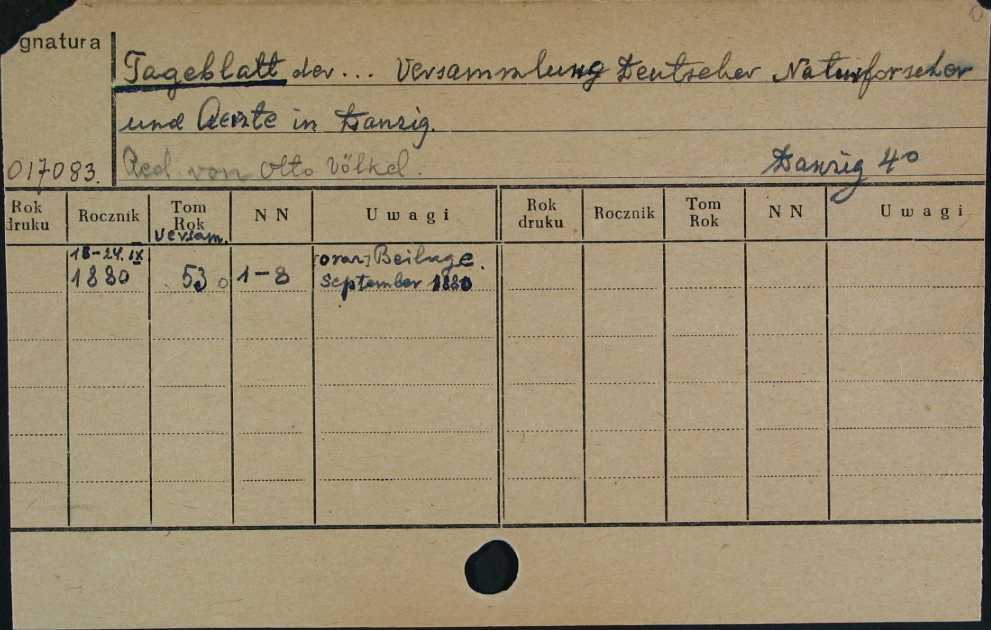 gnatura
Tageblatt der ... Versammlung Deutscher Naturforscher
und Aerzte in Danzig.
017083. Red. von Otto Völkel. Danzig 4°
Rok druku Rocznik Tom Rok N N Uwagi Rok druku Rocznik Tom Rok N N Uwagi
Versam.
18-24.IX (oraz) Beilage.
1880 53 1-8 September 1880